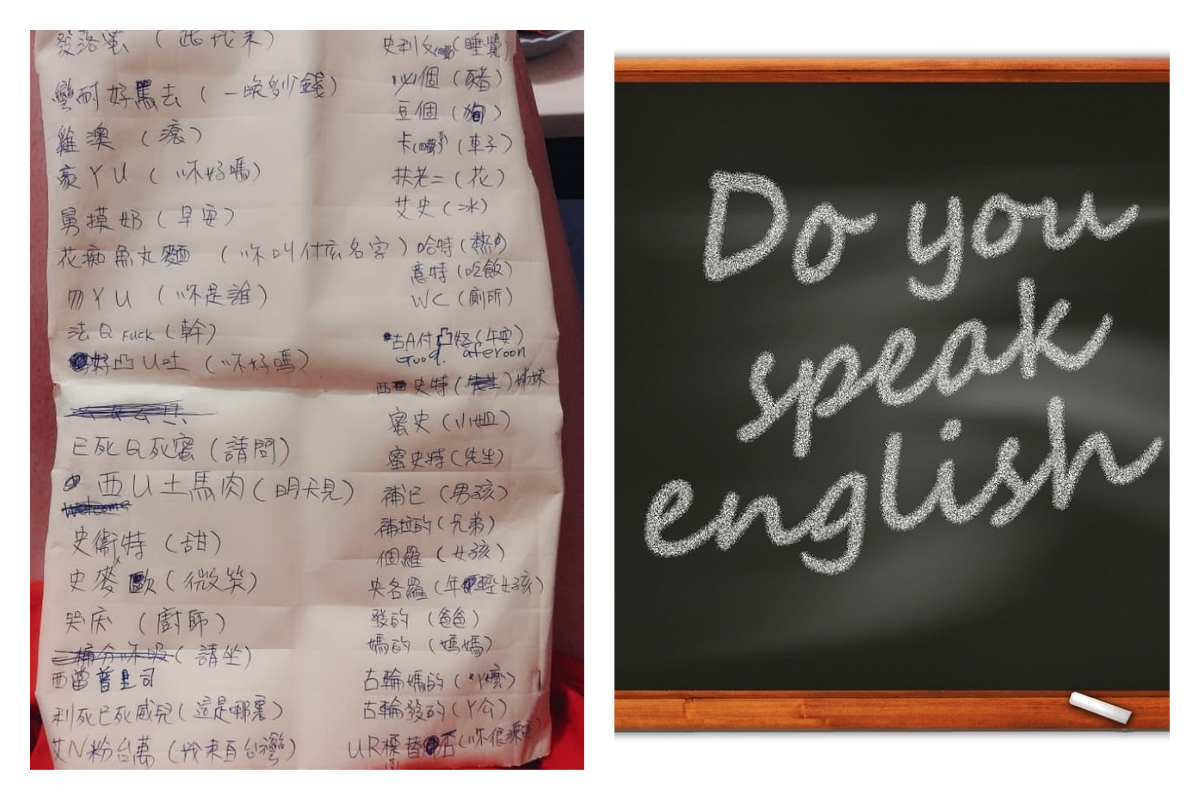 發落蜜 (我來)
變耐好罵去 (一晚多少錢)
雞澳 (滾)
豪ㄚU (你好嗎)
舅摸奶 (早安)
花痴魚文麵 (你叫什広名字)
勿ㄚU (你是誰)
法Q Fuck (幹)
好凸U吐 (你好嗎)
已死Q死蜜 (請問)
西U土馬肉 (明天見)
史衛特 (甜)
史麥歐 (微笑)
哭床 (廚師)
(請坐)
西當普里司
利死已死威兒 (這是哪裏)
艾N粉台萬 (我來自台灣)
史利 (睡覺)
個 (豬)
豆個 (狗)
卡 (車子)
扶老二 (花)
艾史 (冰)
哈特 (熱的)
意特 (吃飯)
WC (廁所)
古A付 (午安)
Good. aferoon
西史特 姊妹
蜜史 (小姐)
蜜史特 (先生)
補已 (男孩)
補拉的 (兄弟)
個羅 (女孩)
央各羅 (年輕女孩)
發的 (爸爸)
媽的 (媽媽)
古輪媽的 (ㄚ嬤)
古輪發的 (ㄚ公)
UR標替否 (你很漂亮)
Do you
speak
english